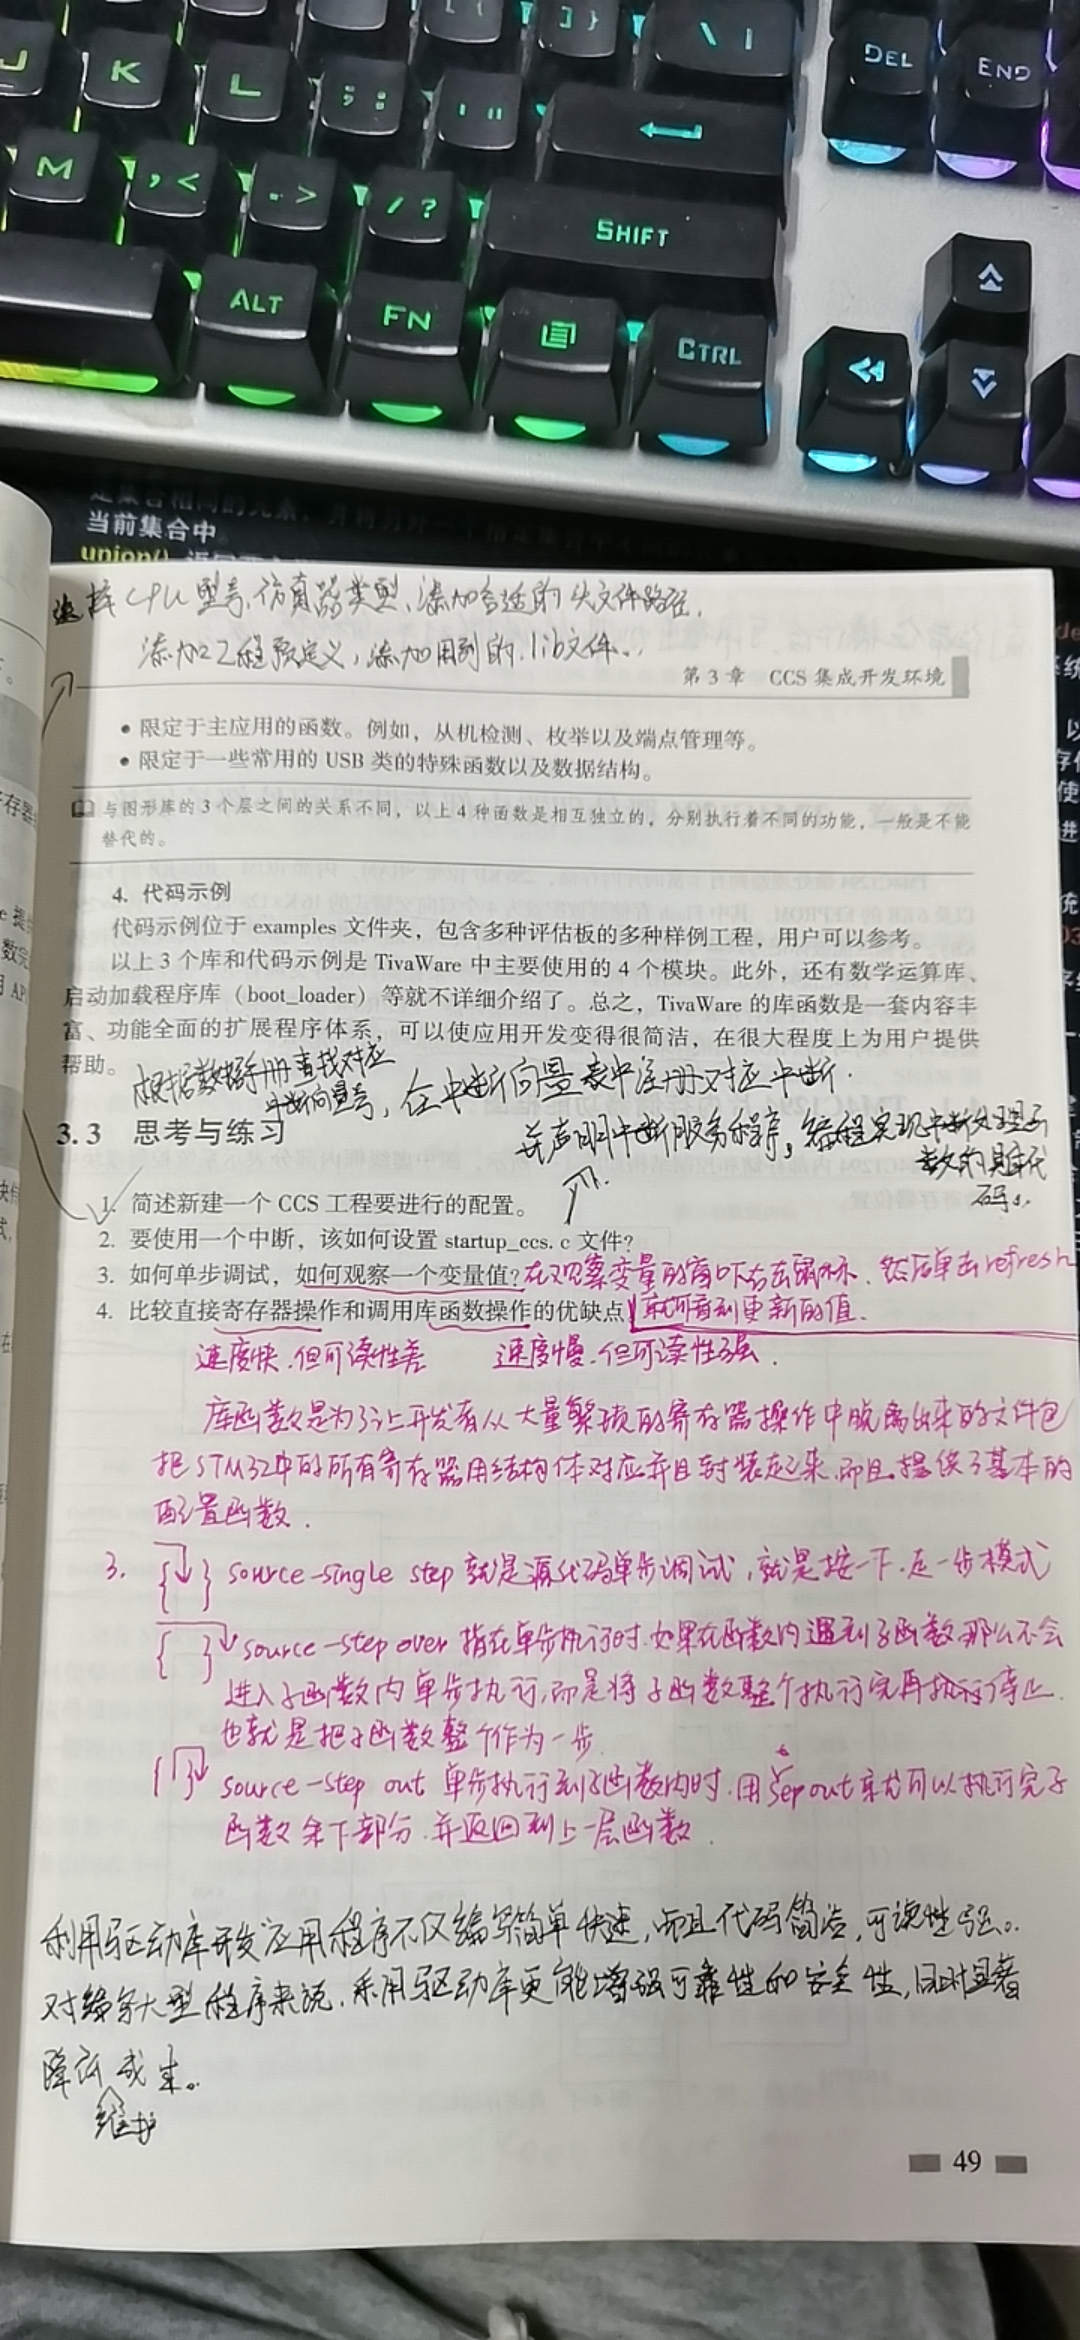 J K L ; : ' " [ { ] } \ |
DEL END
M , < . > / ? SHIFT
ALT FN CTRL
当前集合中。
union()
选择CPU型号,仿真器类型,添加合适的头文件路径,
添加工程预定义,添加用到的.lib文件..
第 3 章 CCS 集成开发环境
• 限定于主应用的函数。例如,从机检测、枚举以及端点管理等。
• 限定于一些常用的 USB 类的特殊函数以及数据结构。
与图形库的 3 个层之间的关系不同,以上 4 种函数是相互独立的,分别执行着不同的功能,一般是不能
替代的。
4. 代码示例
代码示例位于 examples 文件夹,包含多种评估板的多种样例工程,用户可以参考。
以上 3 个库和代码示例是 TivaWare 中主要使用的 4 个模块。此外,还有数学运算库、
启动加载程序库(boot_loader)等就不详细介绍了。总之,TivaWare 的库函数是一套内容丰
富、功能全面的扩展程序体系,可以使应用开发变得很简洁,在很大程度上为用户提供
帮助。
根据数据手册查找对应
中断向量号,在中断向量表中注册对应中断.
并声明中断服务程序,编程实现中断处理函
数的具体代
码。
3.3 思考与练习
1. 简述新建一个 CCS 工程要进行的配置。
2. 要使用一个中断,该如何设置 startup_ccs.c 文件?
3. 如何单步调试,如何观察一个变量值?在观察变量的窗口下右击鼠标.然后单击refresh
4. 比较直接寄存器操作和调用库函数操作的优缺点 就可看到更新的值.
速度快.但可读性差 速度慢.但可读性强.
库函数是为了让开发者从大量繁琐的寄存器操作中脱离出来的文件包
把STM32中的所有寄存器用结构体对应并且封装起来.而且提供了基本的
配置函数.
3. { } source-single step 就是源代码单步调试,就是按一下.走一步模式
{ } source-step over 指在单步执行时.如果在函数内遇到子函数那么不会
进入子函数内单步执行,而是将子函数整个执行完再执行停止.
也就是把子函数整个作为一步.
{ } source-step out 单步执行到子函数内时.用step out 就可以执行完子
函数余下部分.并返回到上一层函数.
利用驱动库开发应用程序不仅编写简单快速,而且代码简洁,可读性强。
对编写大型程序来说.采用驱动库更能增强可靠性和安全性,同时显著
降低成本。
维护
49